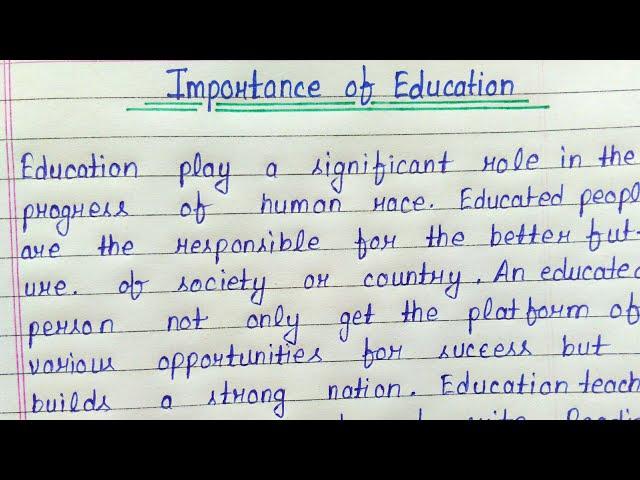 Importance of Education
Education play a significant role in the
progress of human race. Educated peopl
are the responsible for the better fut-
ure. of society or country. An educated
person not only get the platform of
various opportunities for success but
builds a strong nation. Education teach